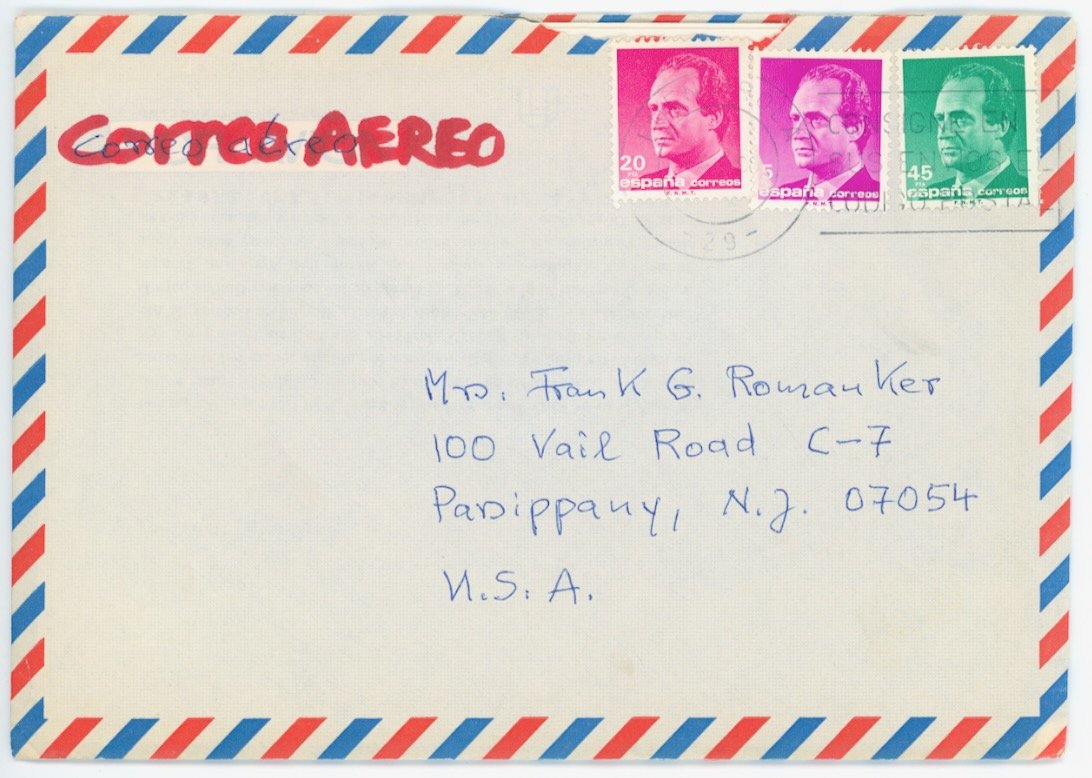 Correo aéreo
CORREO AEREO
20
PTA
españa correos
F.N.M.T.
5
españa correos
F.N.M.T.
45
PTA
españa correos
F.N.M.T.
CONSIGNE EN
CODIGO POSTAL
Mrs. Frank G. Romanker
100 Vail Road C-7
Parsippany, N.J. 07054
U.S.A.